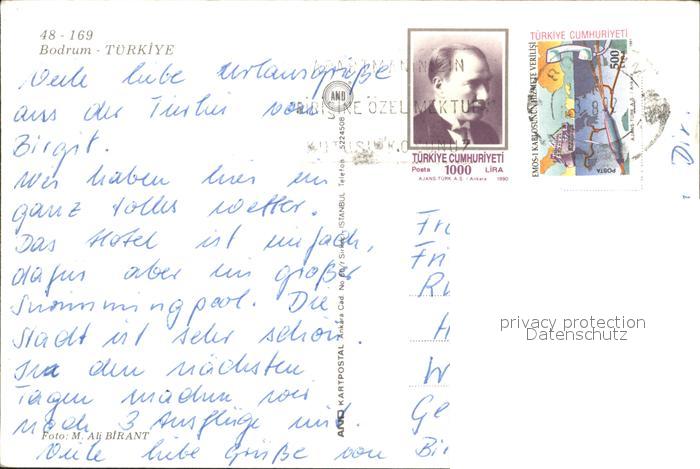 48 - 169
Bodrum - TÜRKİYE
Viele liebe Urlaubsgrüße
aus der Türkei von
Birgit.
Wir haben hier ein
ganz tolles Wetter.
Das Hotel ist einfach,
dafür aber ein großer
Swimmingpool. Die
Stadt ist sehr schön.
In den nächsten
Tagen machen wir
noch 3 Ausflüge mit.
Viele liebe Grüße von Bi
Foto: M. Ali BİRANT
AND
AND KARTPOSTAL Ankara Cad. No Sirkeci İSTANBUL Telefon 5224508
ÖZEL MEKTUP
TÜRKİYE CUMHURİYETİ
Posta 1000 LİRA
AJANS-TÜRK A.Ş. - Ankara 1990
TÜRKİYE CUMHURİYETİ
EMOS-1 KABLOSUNUN HİZMETE VERİLİŞİ
500
POSTA
Dir.
Fr
Fri
R
H
W
Ge
privacy protection
Datenschutz